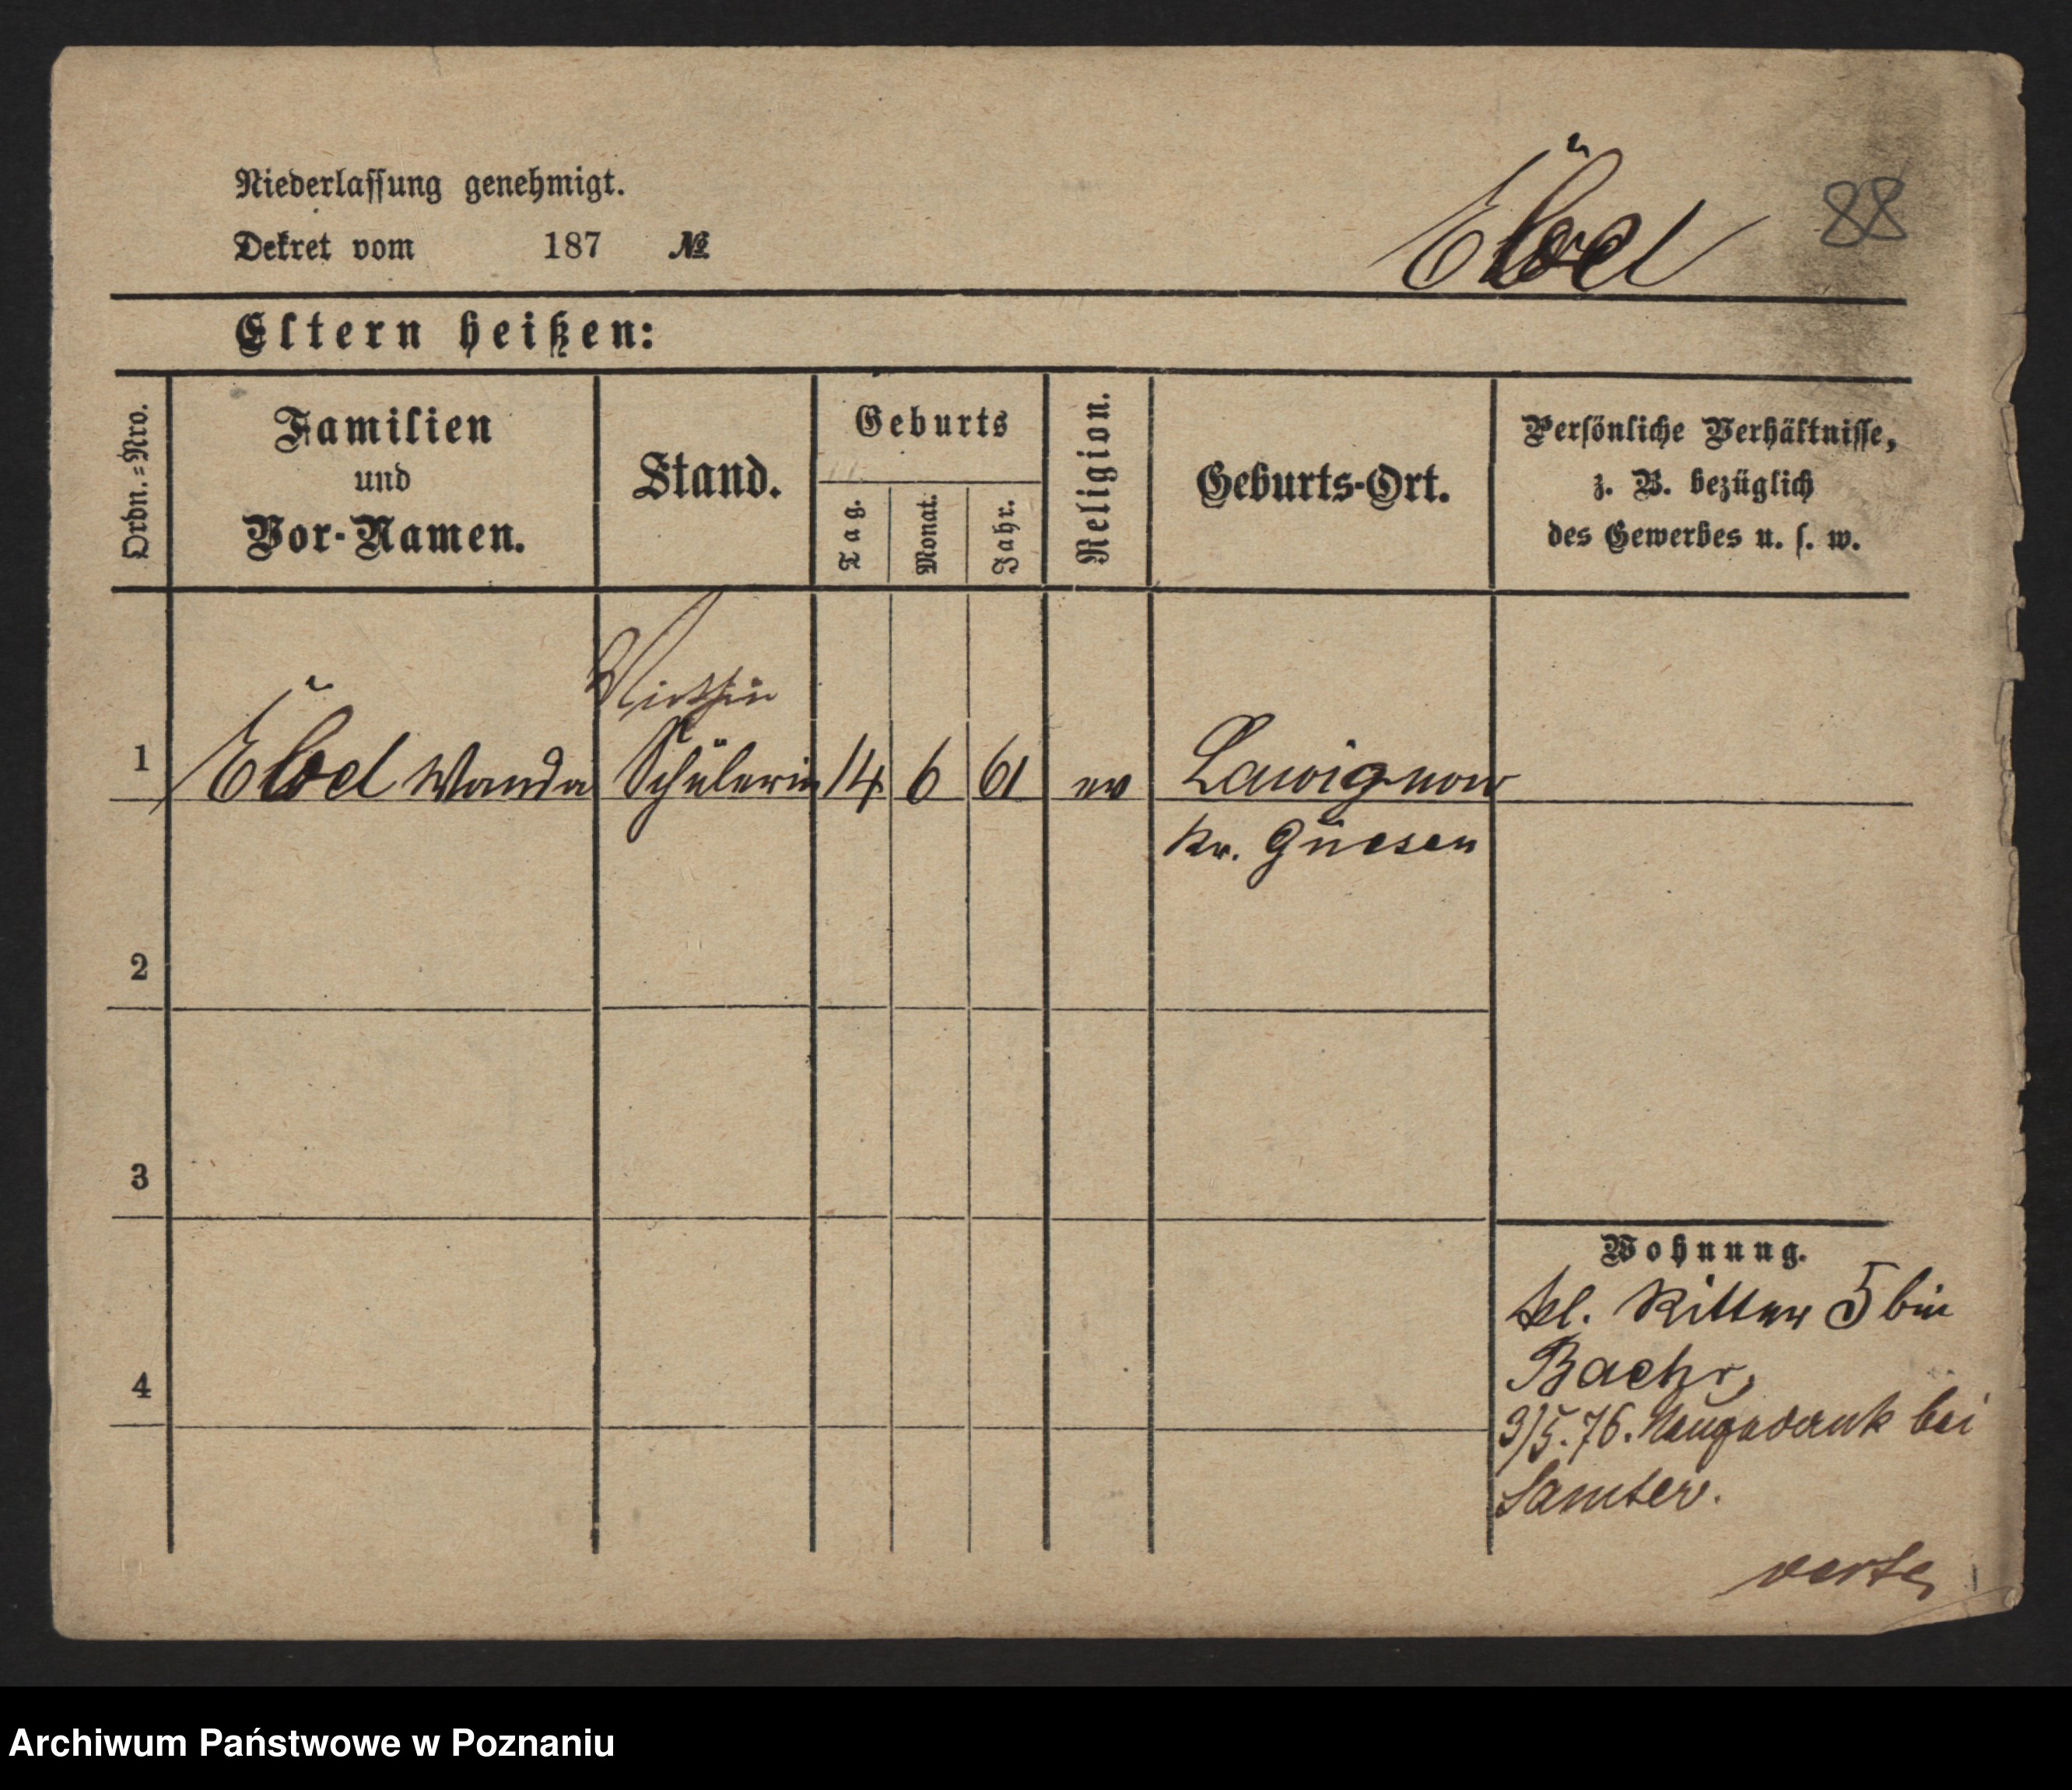 Niederlassung genehmigt.
Dekret vom 187 №
Ebel 88
Eltern heißen:
Ordn.=Nro.
Familien
und
Vor-Namen.
Stand.
Geburts
Tag.
Monat.
Jahr.
Religion.
Geburts-Ort.
Persönliche Verhältnisse,
z. B. bezüglich
des Gewerbes u. s. w.
Wirthin
1 Ebel Wanda Schülerin 14 6 61 ev
Kr. Gnesen
2
3
4
Wohnung.
kl. Ritter 5 bei
Baehr,
3/5.76. Neugedank bei
Samter.
verte
Archiwum Państwowe w Poznaniu